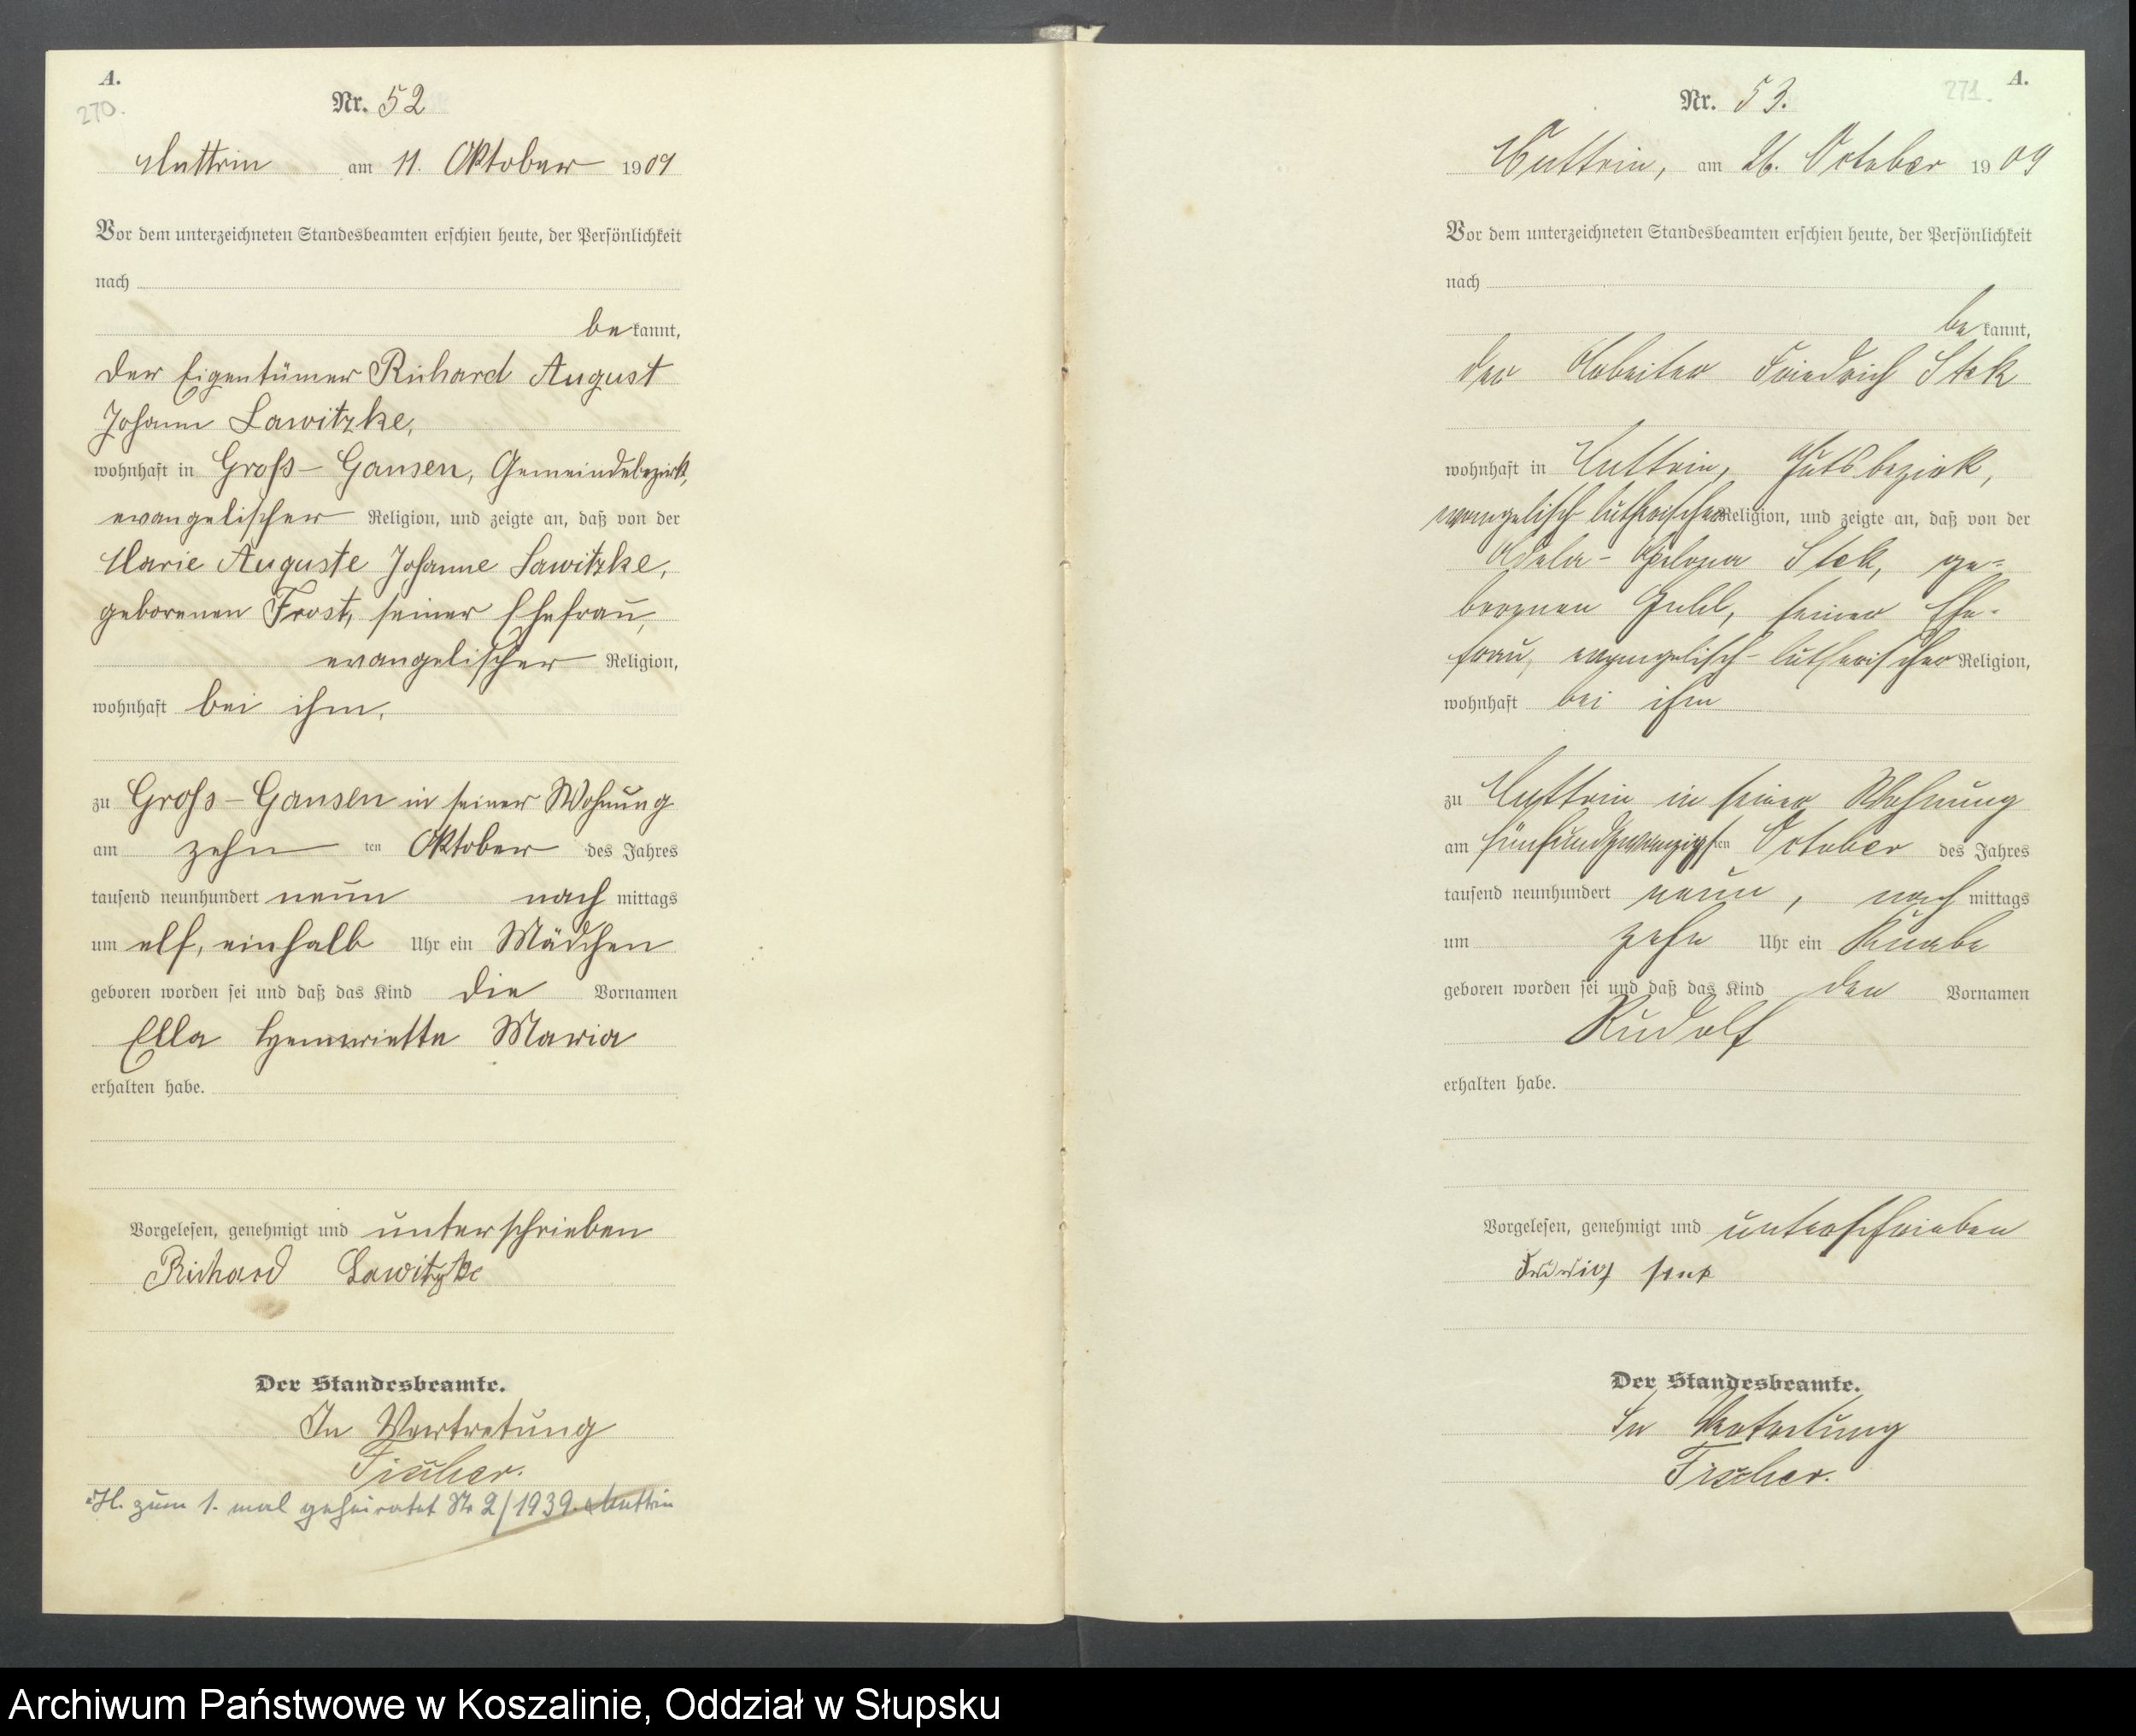 A.
270.
Nr. 52
Muttrin am 11. Oktober 1909
Vor dem unterzeichneten Standesbeamten erschien heute, der Persönlichkeit
nach
be kannt,
der Eigentümer Richard August
Johann Lawitzke,
wohnhaft in Groß-Gansen, Gemeindebezirk,
evangelischer Religion, und zeigte an, daß von der
Marie Auguste Johanne Lawitzke,
geborenen Frost, seiner Ehefrau,
evangelischer Religion,
wohnhaft bei ihm,
zu Groß-Gansen in seiner Wohnung
am zehn ten Oktober des Jahres
tausend neunhundert neun nach mittags
um elf, einhalb Uhr ein Mädchen
geboren worden sei und daß das Kind die Vornamen
Ella Henriette Maria
erhalten habe.
Vorgelesen, genehmigt und unterschrieben
Richard Lawitzke
Der Standesbeamte.
In Vertretung
Fischer.
H. zum 1. mal geheiratet Nr 2/1939 Muttrin
A.
271.
Nr. 53.
Muttrin, am 26. October 1909
Vor dem unterzeichneten Standesbeamten erschien heute, der Persönlichkeit
nach
be kannt,
der Arbeiter Friedrich Stek
wohnhaft in Muttrin, Gutsbezirk,
evangelisch lutherischer Religion, und zeigte an, daß von der
Stek, ge-
borenen seiner Ehe-
frau, evangelisch-lutherischer Religion,
wohnhaft bei ihm
zu Muttrin in seiner Wohnung
am fünfundzwanzigsten October des Jahres
tausend neunhundert neun, nach mittags
um zehn Uhr ein Knabe
geboren worden sei und daß das Kind den Vornamen
Rudolf
erhalten habe.
Vorgelesen, genehmigt und unterschrieben
Der Standesbeamte.
In Vertretung
Fischer.
Archiwum Państwowe w Koszalinie, Oddział w Słupsku